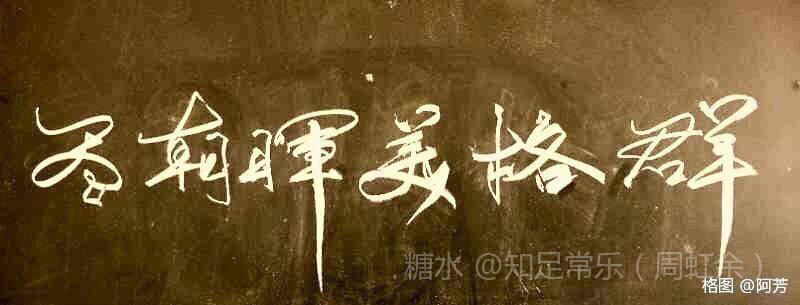 朝暉美格群
糖水 @知足常乐（周虹余）
格图 @阿芳